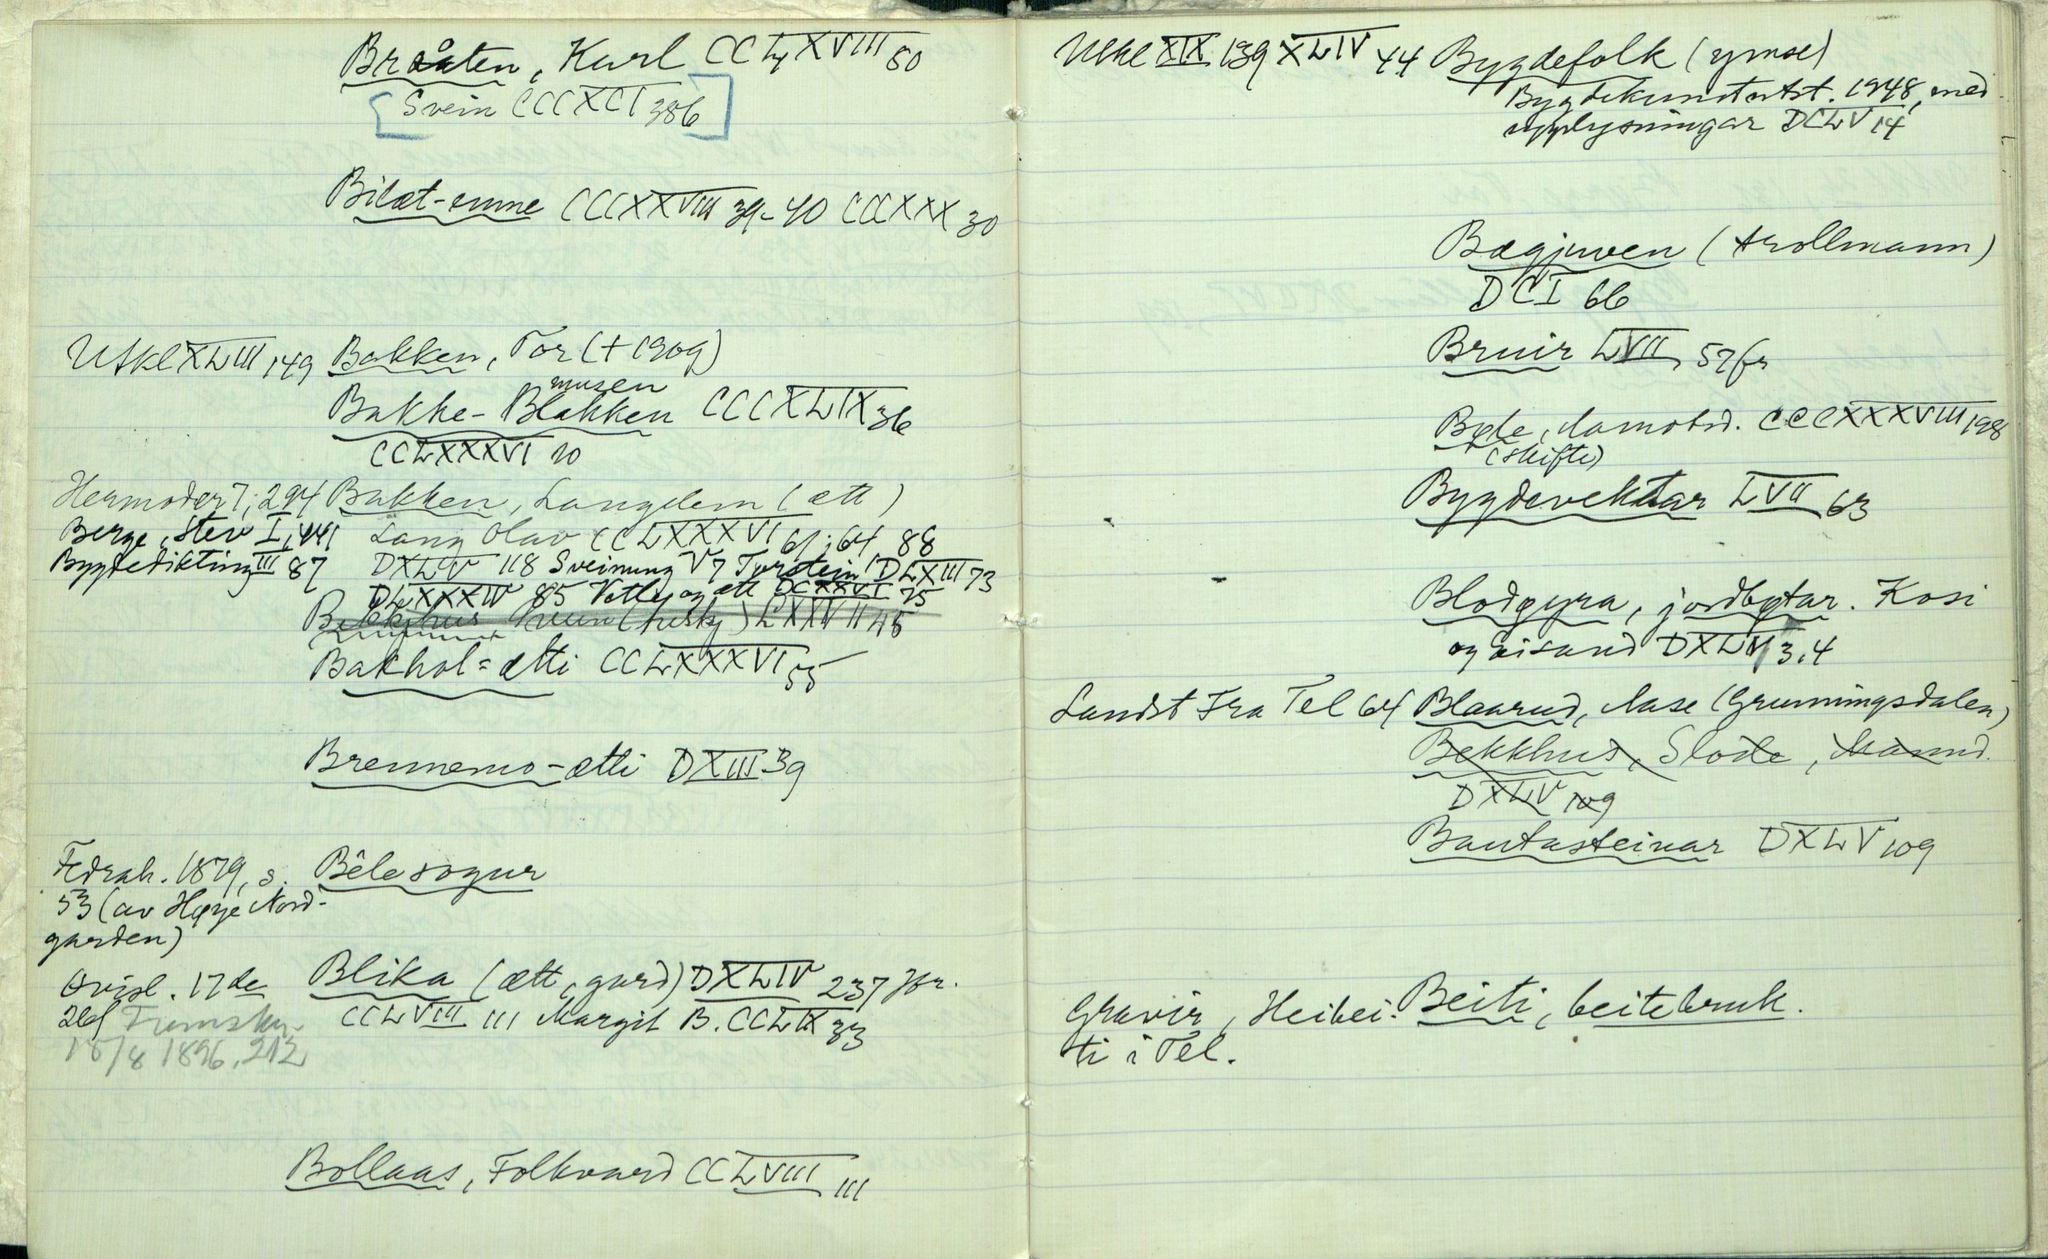 Braaten, Karl CCLXXVIII 50
[Svein CCCXCI 386]
Bilæt-emne CCCXXVIII 39-40 CCCXXX 30
Utkl XLIII 149 Bakken, Tor (+ 1909)
musen
Bakke-Blakken CCCXLIX 36
CCLXXXVI 10
Hermoder 7; 294 Bakken, Langlem (ætt)
Berge, Stev I, 441 Lang Olav CCLXXXVI 61; 64 88
Bygdedikting III 87 DXLV 118 Sveinung V 7 Torstein DLXIII 73
DLXXXIV 85 Vetle og ætt DCXXVI 75
LXXVII 45
Bakhol=ætti CCLXXXVI 55
Brennemo-ætti DXIII 39
Fedrah. 1879, s. Bêlesogur
53 (av Høye Nord-
garden)
Avisl. 17de Blika (ætt, gard) DXLIV 237 ffr.
CCLVIII 111 Margit B. CCLIX 33
18/8 1896, 212
Bollaas, Folkvard CCLVIII 111
Utkl XIX 139 XLIV 44 Bygdefolk (ymse)
Bygdekunstutst. 1948, med
upplysningar DCLV 14
Bægjuven (trollmann)
DCI 66
Bruir LVII 57 fr
Byte, Aamotsd. CCCXXXVIII 198
(skifte)
Bygdevektar LVII 63
Blodgyra, jordbytar. Kosi
og DXLV 3.4
Landst Fra Tel 64 Blaarud, Aase (Grunningsdalen)
Bekkhus, Slode,
DXLV 109
Bautasteinar DXLV 109
Gravir, Heibei- Beiti, beitebruk.
ti i Tel.